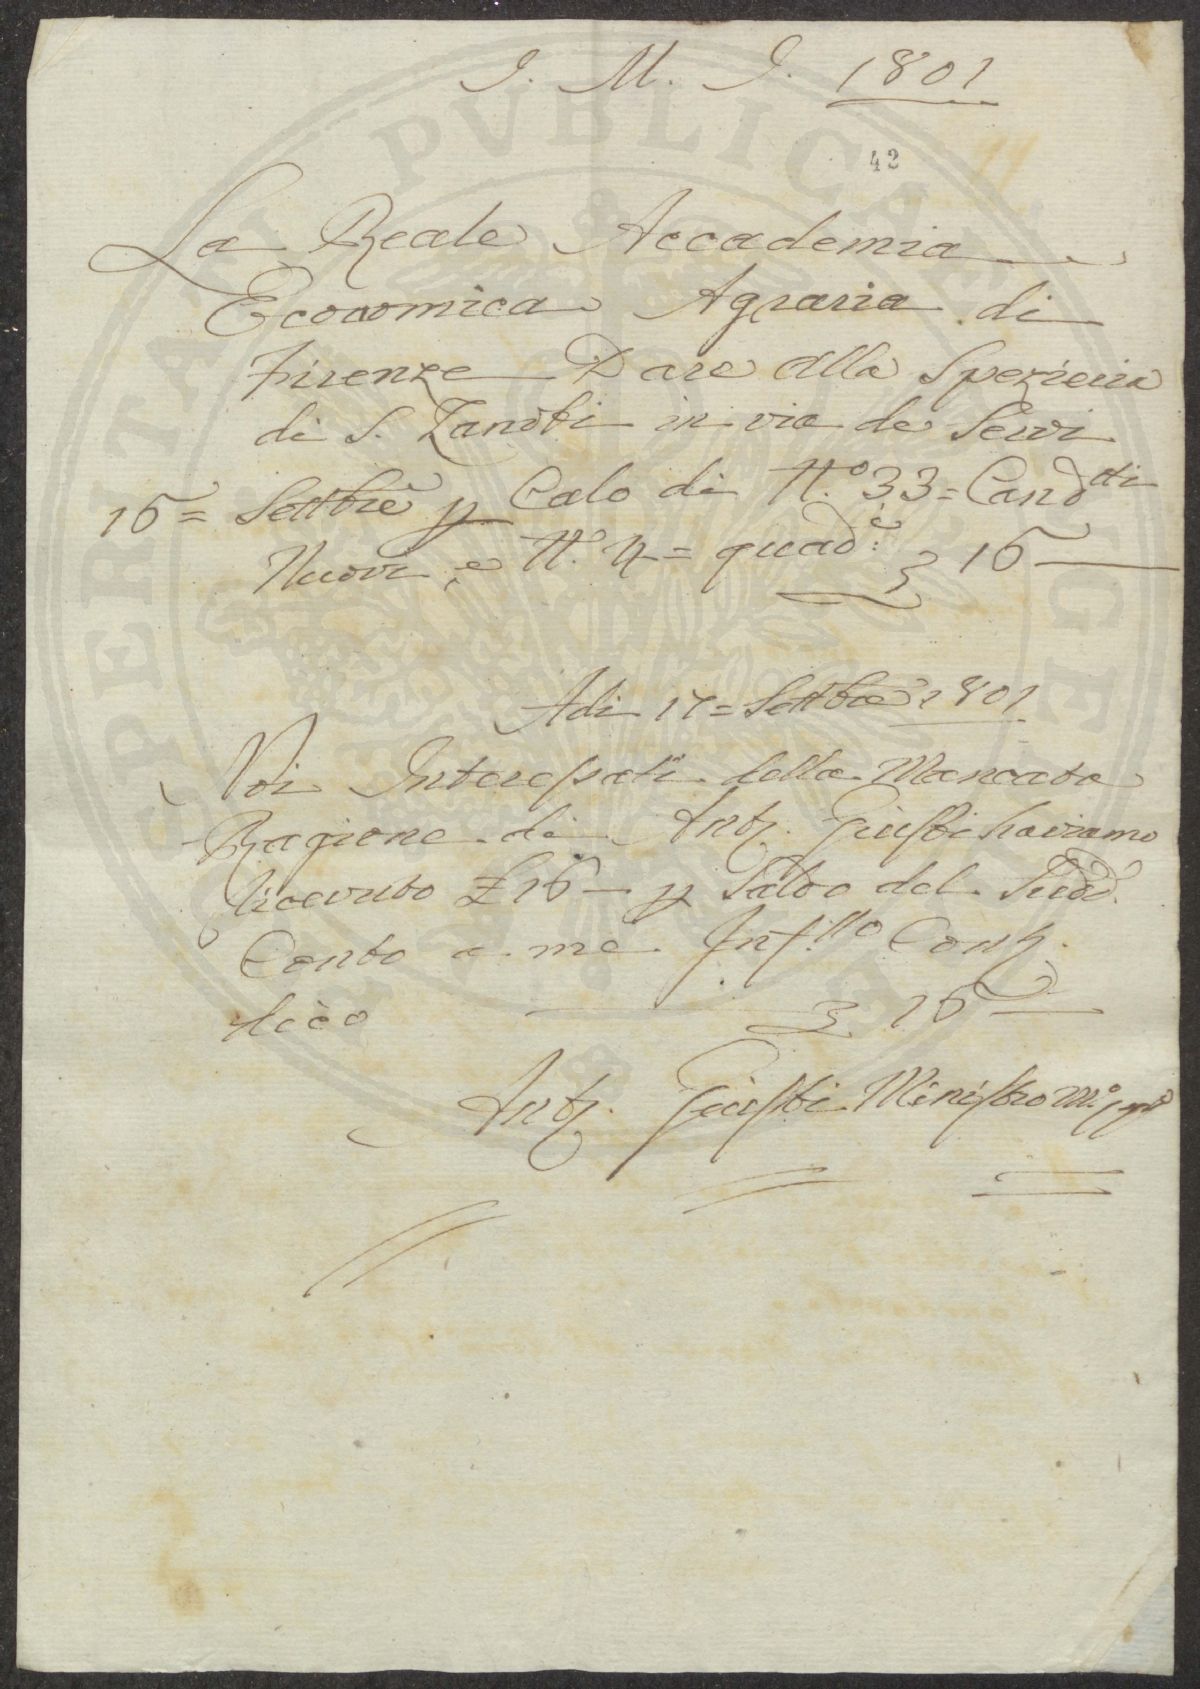 J. M. J. 1801
42
La Reale Accademia
Economica Agraria di
Firenze Dare alla Spezieria
di S. Zanobi in via de Servi
16= Settbre p Calo di N.o 33= Cand.tti
Nuovi, e N. 4= quad.e £ 16
Adi 17= Settbre 1801
Noi Interessati della Mancata
Ragione di Ant. Giusti haviamo
ricevuto £ 16 — p Saldo del Sudd.
Conto a me Inf.tto Cont.
dico £ 16 —
Ant. Giusti Ministro M.o pp.a